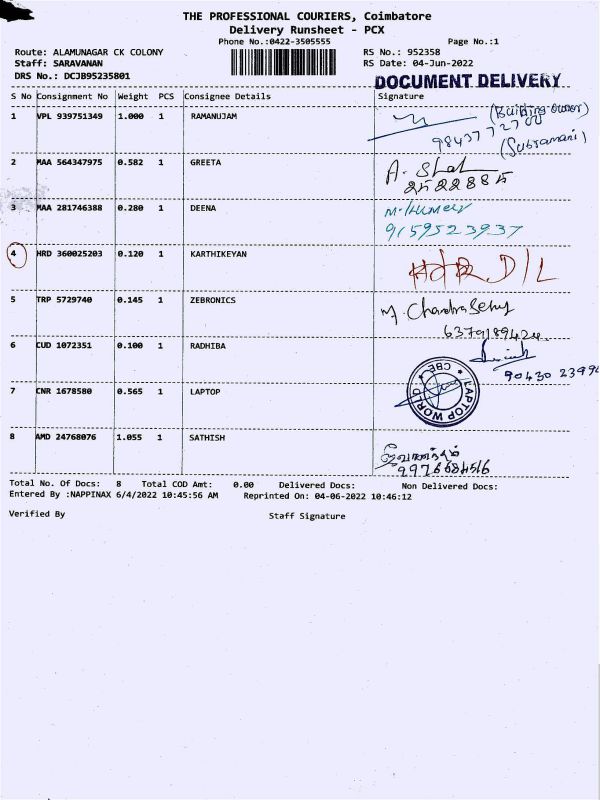 THE PROFESSIONAL COURIERS, Coimbatore
Delivery Runsheet - PCX
Phone No.:0422-3505555
Page No.:1
Route: ALAMUNAGAR CK COLONY
RS No.: 952358
Staff: SARAVANAN
RS Date: 04-Jun-2022
DRS No.: DCJB95235801
DOCUMENT DELIVERY
S No Consignment No Weight PCS Consignee Details Signature
1 VPL 939751349 1.000 1 RAMANUJAM (Building owner)
(Subramani)
2 MAA 564347975 0.582 1 GREETA A. Shal
2522885
3 MAA 281746388 0.280 1 DEENA
9159523937
4 HRD 360025203 0.120 1 KARTHIKEYAN D/L
5 TRP 5729740 0.145 1 ZEBRONICS
6379189424
6 CUD 1072351 0.100 1 RADHIBA
90430 2399
7 CNR 1678580 0.565 1 LAPTOP LAPTOP WORLD * CBE *
8 AMD 24768076 1.055 1 SATHISH
9976684516
Total No. Of Docs: 8 Total COD Amt: 0.00 Delivered Docs: Non Delivered Docs:
Entered By :NAPPINAX 6/4/2022 10:45:56 AM Reprinted On: 04-06-2022 10:46:12
Verified By Staff Signature